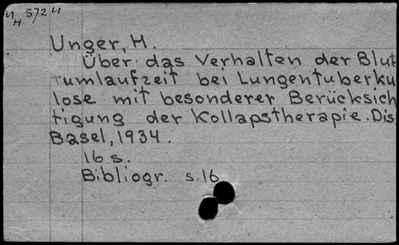 Unger, M.
Über das Verhalten der Blut
umlaufzeit bei Lungentuberku
lose mit besonderer Berücksich
tigung der Kollapstherapie. Dis
Basel, 1934.
16 s.
Bibliogr. s.16